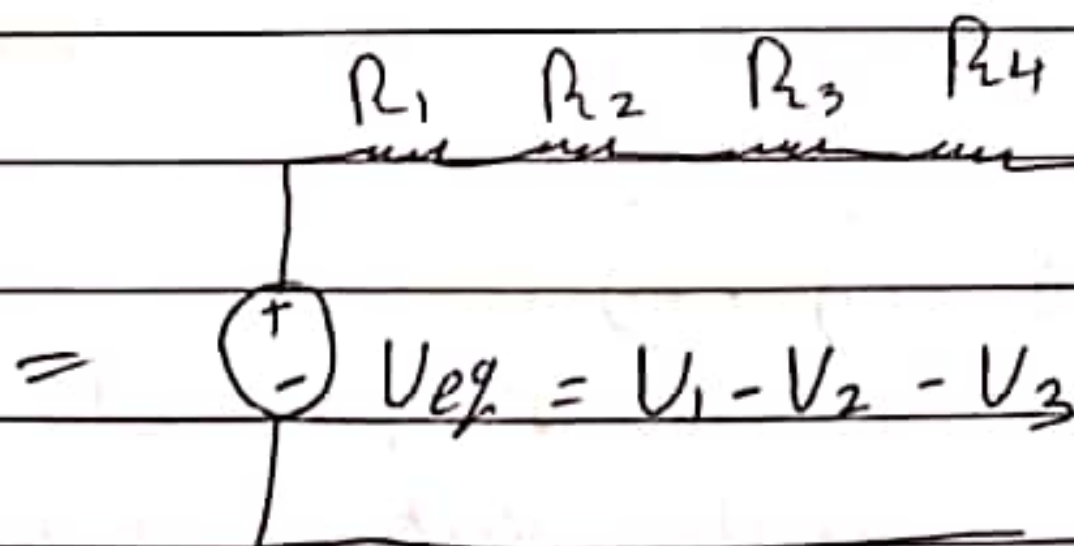 R1 R2 R3 R4
+
= Veq = V1 - V2 - V3
-